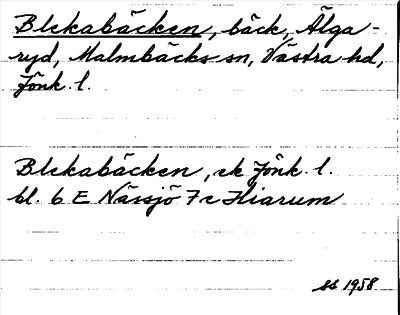 Blekabäcken, bäck, Älga-
ryd, Malmbäcks sn, Västra hd,
Jönk. l.
Blekabäcken, ek Jönk. l.
bl. 6 E Nässjö 7 c Fliarum
ss 1958